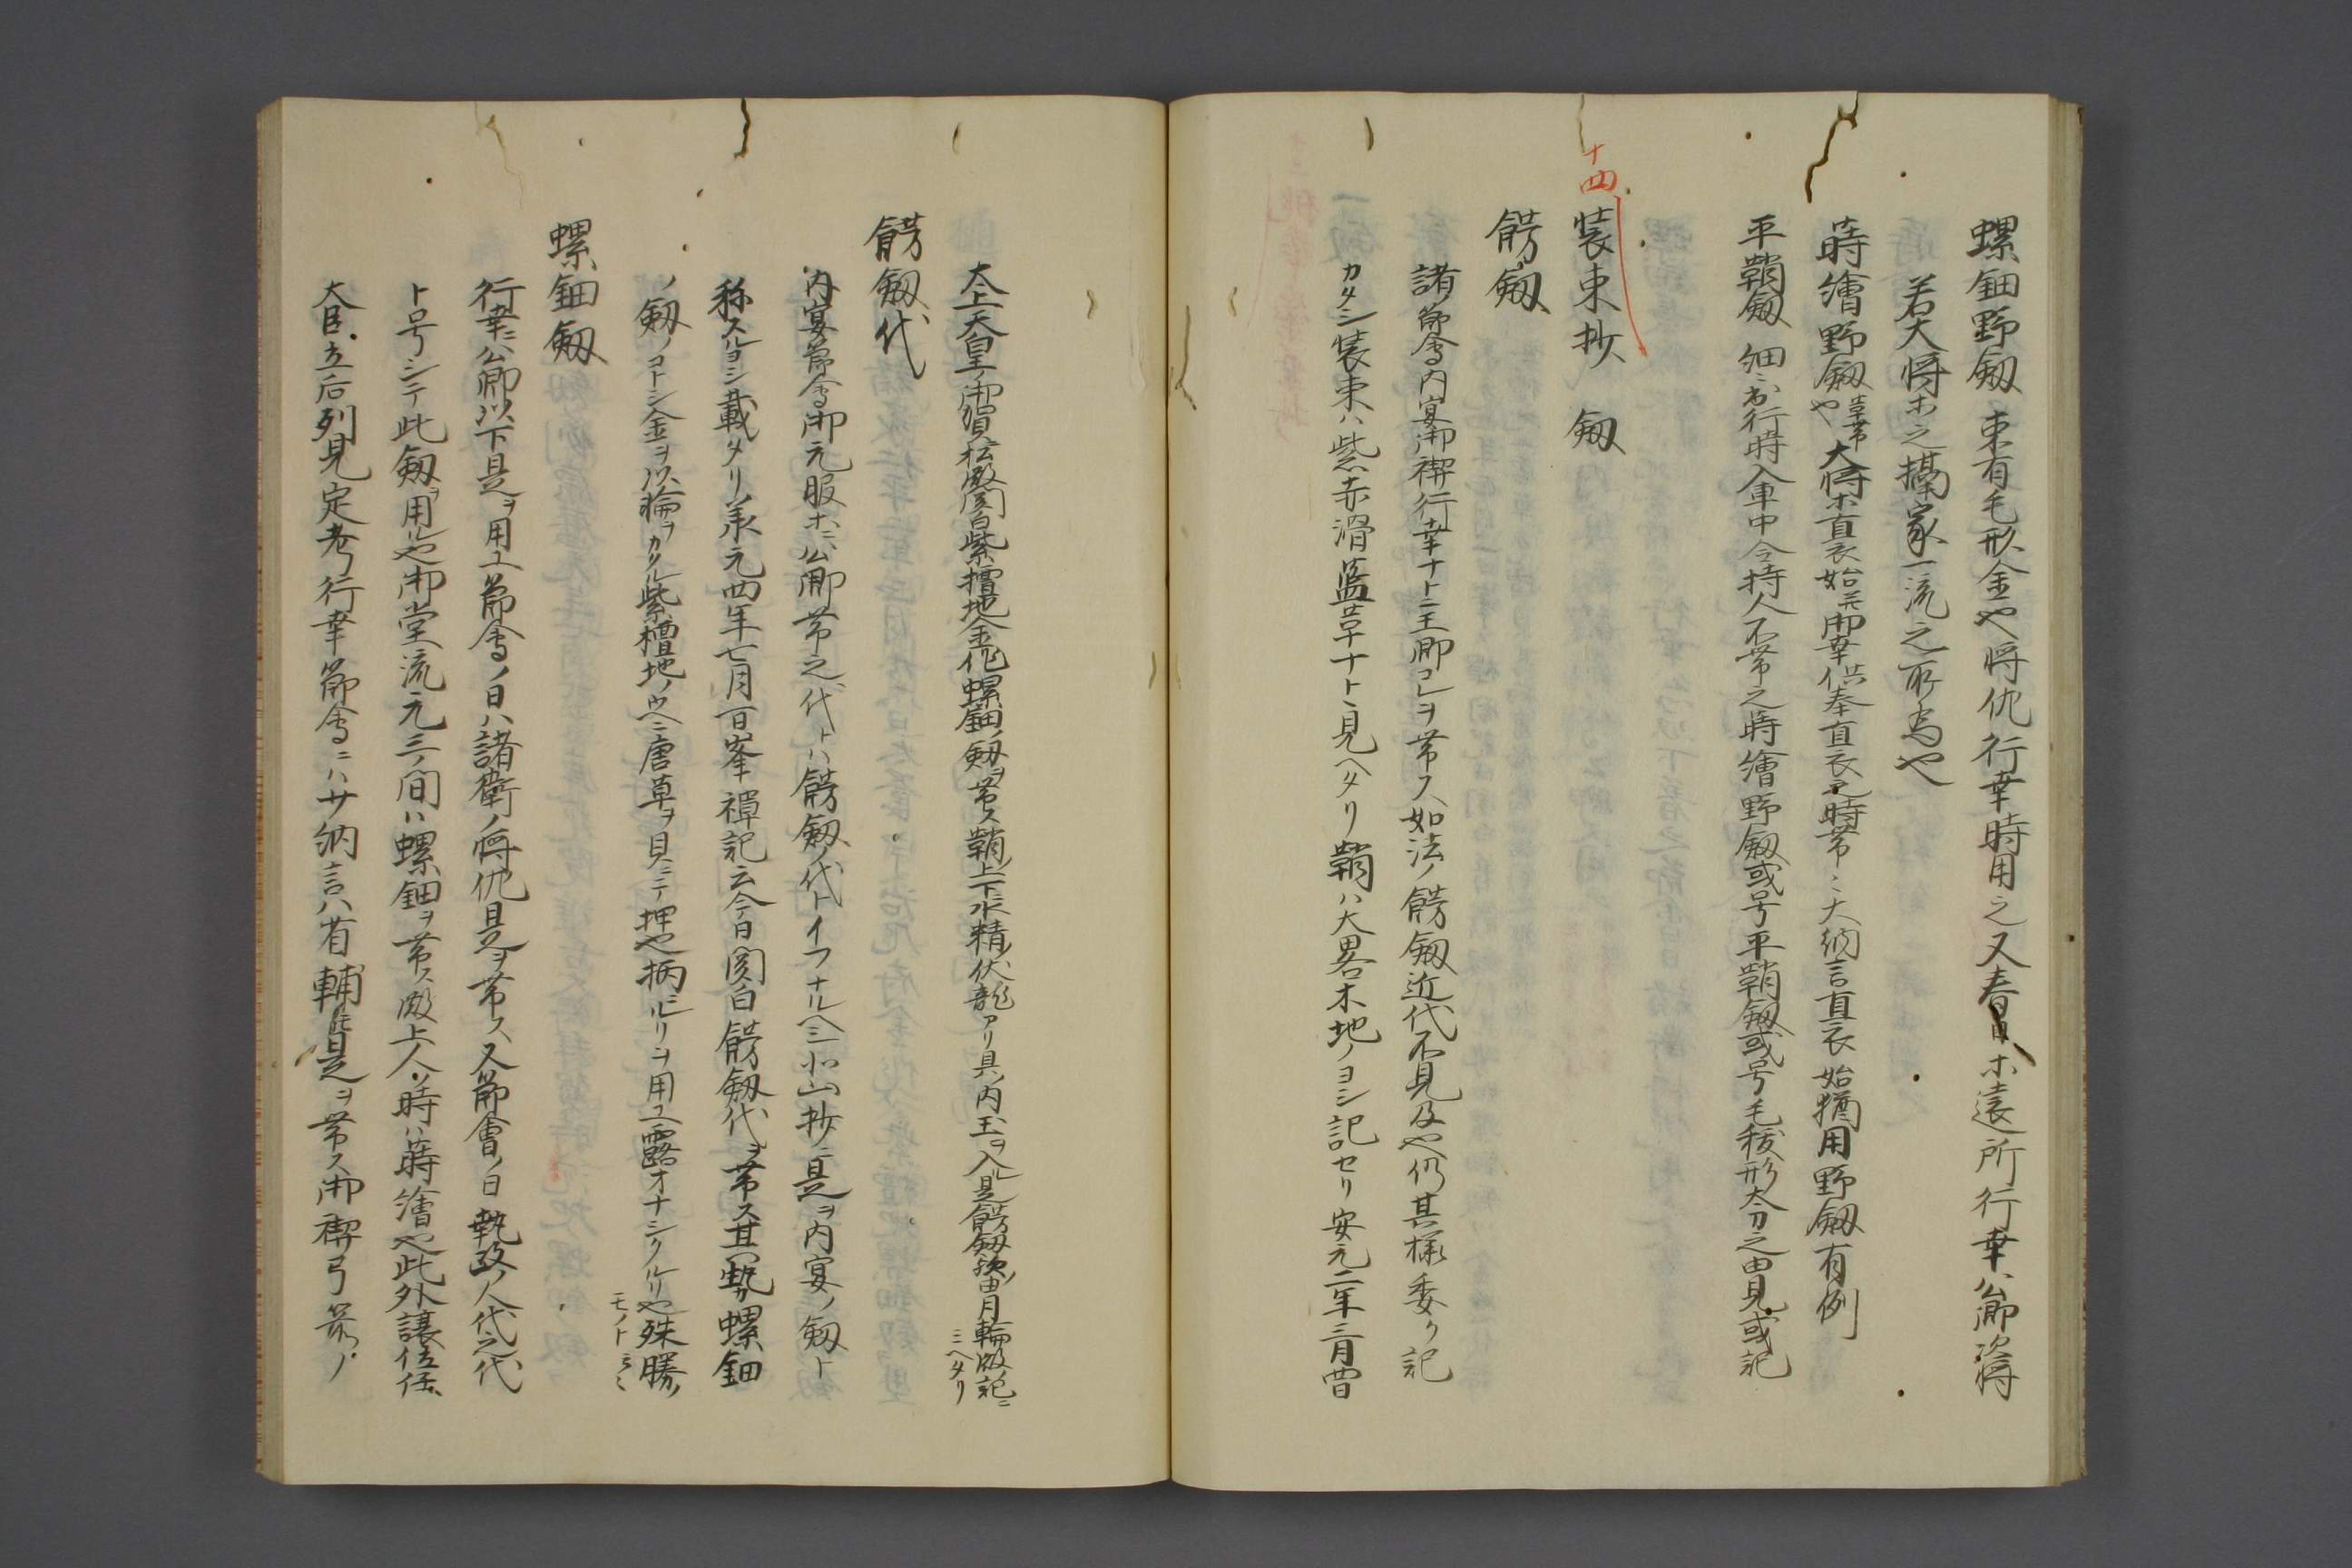 螺鈿野剱 束有毛形金や将佐行幸時用之又春日ホ遠所行幸公卿次将
若大将ホ之搆家一流之所為や
蒔繪野剱
平鞘剱 細ゝ出行時入車中令持人不帯之蒔繪野剱或号平鞘剱或号毛抜形太刀之由見或記
十四
装束抄 剱
餝剱
諸節會内宴御禊行幸ナトニ王卿コレヲ帯ス如法ノ餝剱近代不見及や仍其様委ク記
カタシ装束ハ紫赤滑藍革ナトト見ヘタリ鞘ハ大畧木地ノヨシ記セリ安元二年三月四日
太上天皇ノ御賀松殿関白紫檀地金作螺鈿ノ剱ヲ帯ス鞘ノ上下水精ノ伏龍アリ具ノ内玉ヲ入ル是餝剱ノ由月輪殿記ニ
ミヘタリ
餝剱代
内宴節會御元服ホニハ公卿帯之代トハ餝剱ノ代トイフナルヘシ北山抄ニ是ヲ内宴ノ剱ト
称スルヨシ載タリ承元四年七月一日峯禅記云今日関白餝剱代ヲ帯ス其勢螺鈿
ノ剱ノコトシ金ヲ以輪ヲカクル紫檀地ノウヘニ唐草ヲ貝ニテ押や柄ルリヲ用ユ露オナシクルリや殊勝ノ
モノト云々
螺鈿剱
行幸ニハ公卿以下是ヲ用ユ節會ノ日ハ諸衛ノ将佐是ヲ帯ス又節會ノ日執政ノ人代之代
ト号シテ此剱ヲ用ルや御堂流元三ノ間ハ螺鈿ヲ帯ス殿上人ノ時ハ蒔繪や此外譲位任
大臣立后列見定考行幸節會ニハサ納言八省輔モ是ヲ帯ス御禊弓箭ノ